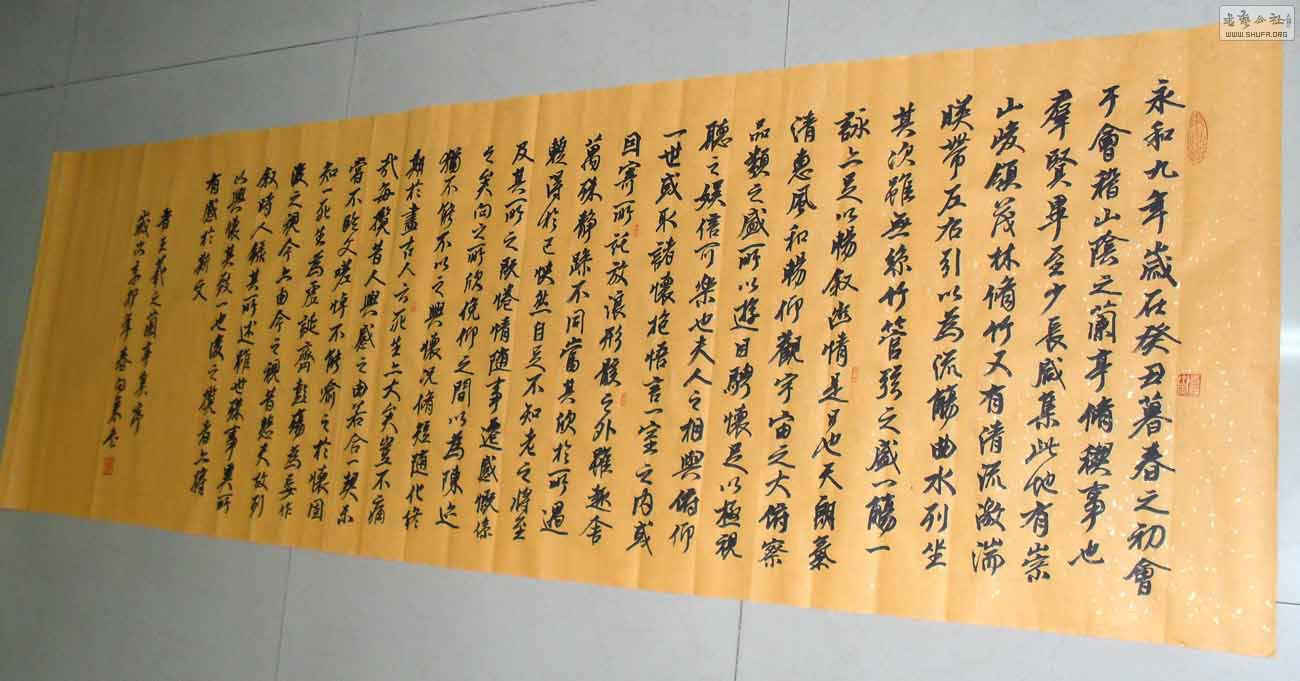 永和九年歲在癸丑暮春之初會
于會稽山陰之蘭亭脩稧事也
羣賢畢至少長咸集此地有崇
山峻領茂林脩竹又有清流激湍
暎帶左右引以為流觴曲水列坐
其次雖無絲竹管弦之盛一觴一
詠亦足以暢叙幽情是日也天朗氣
清惠風和暢仰觀宇宙之大俯察
品類之盛所以遊目騁懷足以極視
聽之娱信可樂也夫人之相與俯仰
一世或取諸懷抱悟言一室之內或
因寄所託放浪形骸之外雖趣舍
萬殊静躁不同當其欣於所遇
暫得於己怏然自足不知老之將至
及其所之既惓情隨事遷感慨係
之矣向之所欣俛仰之間以為陳迹
猶不能不以之興懷况脩短隨化終
期於盡古人云死生亦大矣豈不痛
哉每攬昔人興感之由若合一契未
嘗不臨文嗟悼不能喻之於懷固
知一死生為虛誕齊彭殤為妄作
後之視今亦由今之視昔悲夫故列
叙時人錄其所述雖世殊事異所
以興懷其致一也後之攬者亦將
有感於斯文
書王羲之蘭亭集序
歲次年春向東書
書藝公社
WWW.SHUFA.ORG